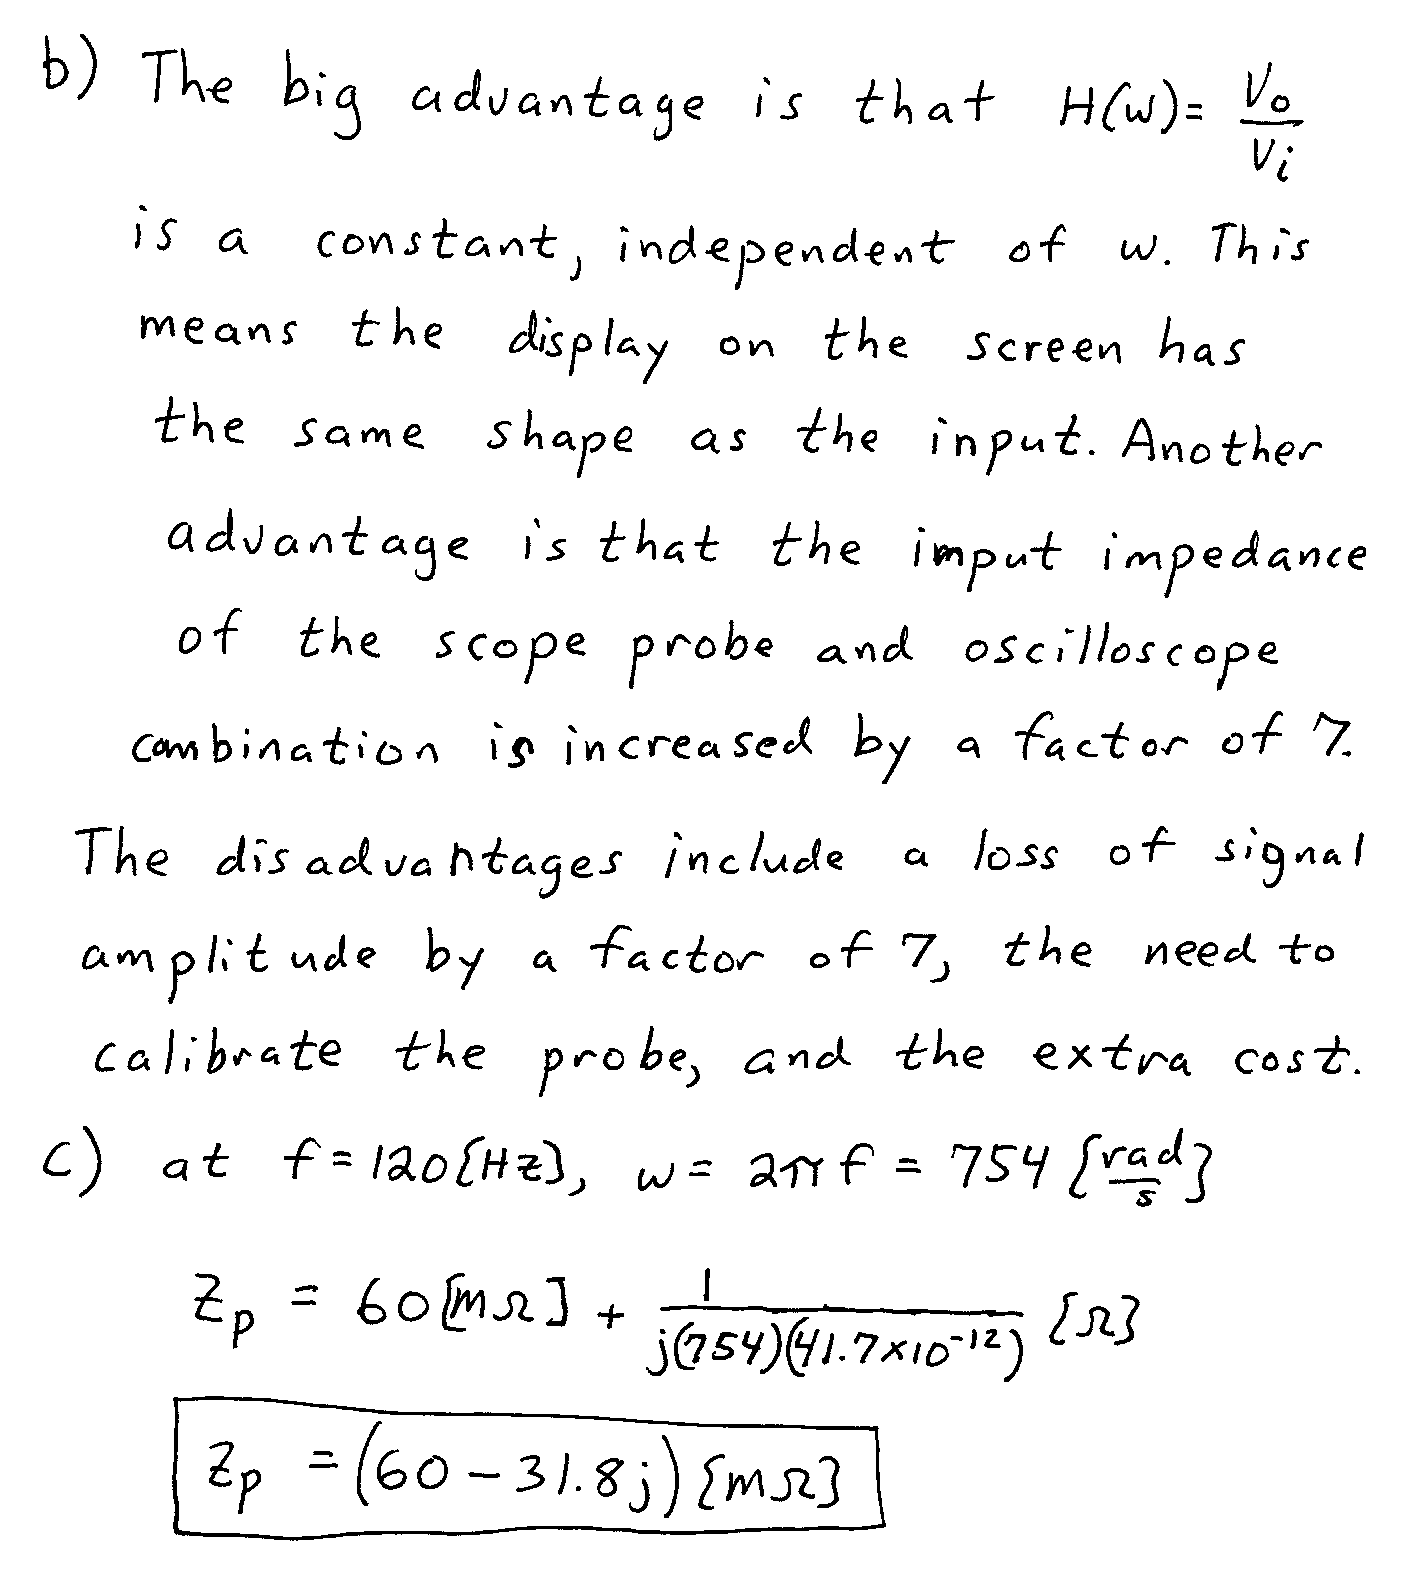 b) The big advantage is that H(w)= Vo/Vi
is a constant, independent of w. This
means the display on the screen has
the same shape as the input. Another
advantage is that the imput impedance
of the scope probe and oscilloscope
combination is increased by a factor of 7.
The disadvantages include a loss of signal
amplitude by a factor of 7, the need to
calibrate the probe, and the extra cost.
c) at f=120[Hz], w= 2πf = 754 [rad/s]
Zp = 60[MΩ] + 1/(j(754)(41.7×10^-12)) [Ω]
Zp = (60 - 31.8j) [MΩ]